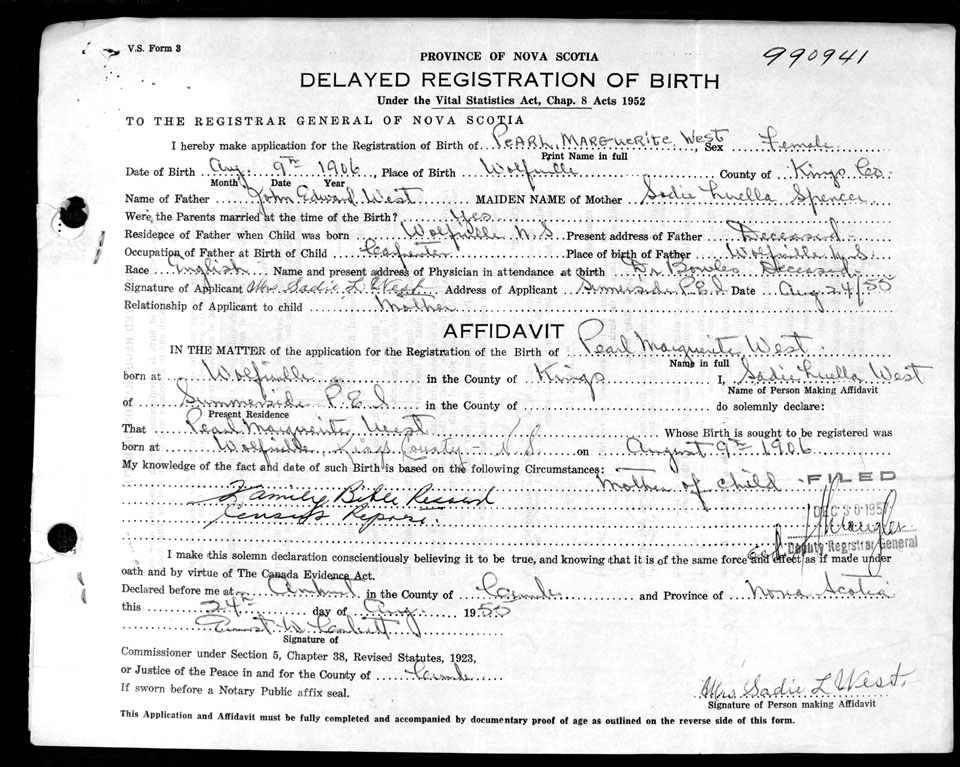 V.S. Form 3
990941
PROVINCE OF NOVA SCOTIA
DELAYED REGISTRATION OF BIRTH
Under the Vital Statistics Act, Chap. 8 Acts 1952
TO THE REGISTRAR GENERAL OF NOVA SCOTIA
I hereby make application for the Registration of Birth of PEARL MARGUERITE WEST, Sex Female
Print Name in full
Date of Birth Aug. 9th 1906, Place of Birth Wolfville County of Kings Co.
Month Date Year
Name of Father John Edward West MAIDEN NAME of Mother Sadie Luella Spencer
Were the Parents married at the time of the Birth? Yes
Residence of Father when Child was born Wolfville N S Present address of Father Deceased
Occupation of Father at Birth of Child Carpenter Place of birth of Father Wolfville N.S.
Race English Name and present address of Physician in attendance at birth Dr Bowles Deceased
Signature of Applicant Mrs Sadie L West Address of Applicant Summerside P.E.I Date Aug 24/55
Relationship of Applicant to child Mother
AFFIDAVIT
IN THE MATTER of the application for the Registration of the Birth of Pearl Marguerite West
Name in full
born at Wolfville in the County of Kings I, Sadie Luella West
Name of Person Making Affidavit
of Summerside P.E.I in the County of do solemnly declare:
Present Residence
That Pearl Marguerite West Whose Birth is sought to be registered was
born at Wolfville, Kings County N.S. on August 9th 1906
My knowledge of the fact and date of such Birth is based on the following Circumstances: Mother of child
FILED
Family Bible Record
DEC 30 195
Census Report.
Deputy Registrar General
I make this solemn declaration conscientiously believing it to be true, and knowing that it is of the same force and effect as if made under
oath and by virtue of The Canada Evidence Act.
Declared before me at Amherst in the County of Cumb and Province of Nova Scotia
this 24th day of Aug. 1955
Signature of
Commissioner under Section 5, Chapter 38, Revised Statutes, 1923,
or Justice of the Peace in and for the County of Cumb
If sworn before a Notary Public affix seal.
Mrs Sadie L West.
Signature of Person making Affidavit
This Application and Affidavit must be fully completed and accompanied by documentary proof of age as outlined on the reverse side of this form.